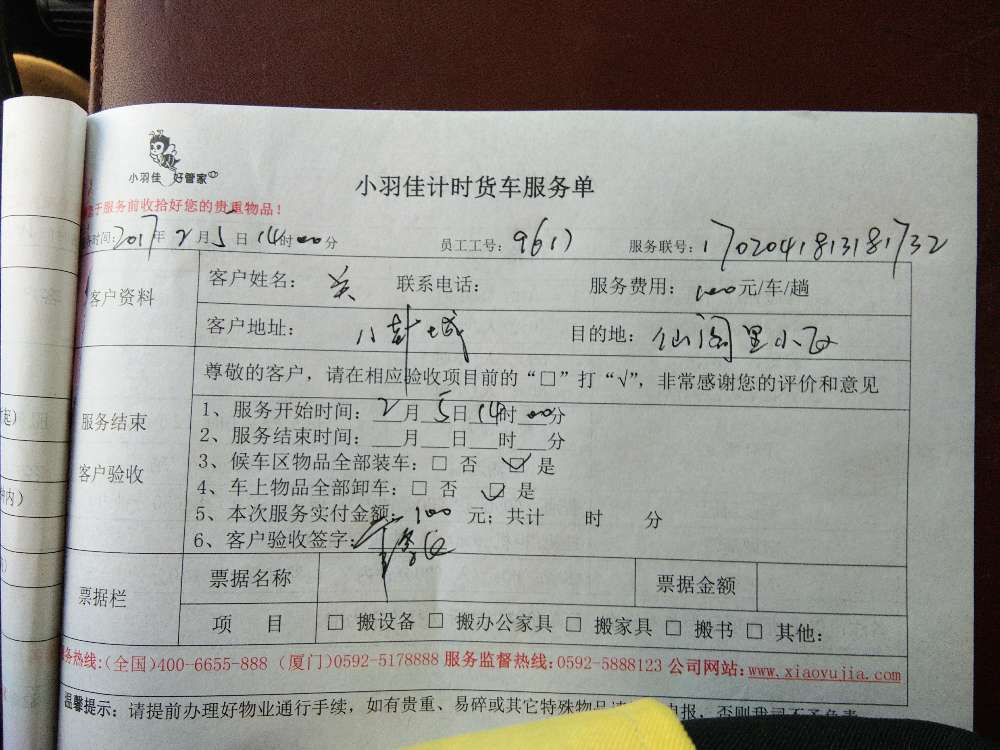 小羽佳 好管家
小羽佳计时货车服务单
于服务前收拾好您的贵重物品！
时间：2017年2月5日14时00分 员工工号：9617 服务联号：1702041813181732
客户资料
客户姓名：关 联系电话： 服务费用：100元/车/趟
客户地址：八卦城 目的地：仙阁里小区
尊敬的客户，请在相应验收项目前的“□”打“√”，非常感谢您的评价和意见
服务结束
客户验收
1、服务开始时间：2月5日14时00分
2、服务结束时间：___月___日___时___分
3、候车区物品全部装车：□ 否 ☑ 是
4、车上物品全部卸车：□ 否 ☑ 是
5、本次服务实付金额：100 元；共计 时 分
6、客户验收签字：
票据栏
票据名称 票据金额
项 目 □ 搬设备 □ 搬办公家具 □ 搬家具 □ 搬书 □ 其他：
务热线：(全国)400-6655-888 (厦门)0592-5178888 服务监督热线：0592-5888123 公司网站：www.xiaoyujia.com
温馨提示：请提前办理好物业通行手续，如有贵重、易碎或其它特殊物品请 申报，否则我司不予负责